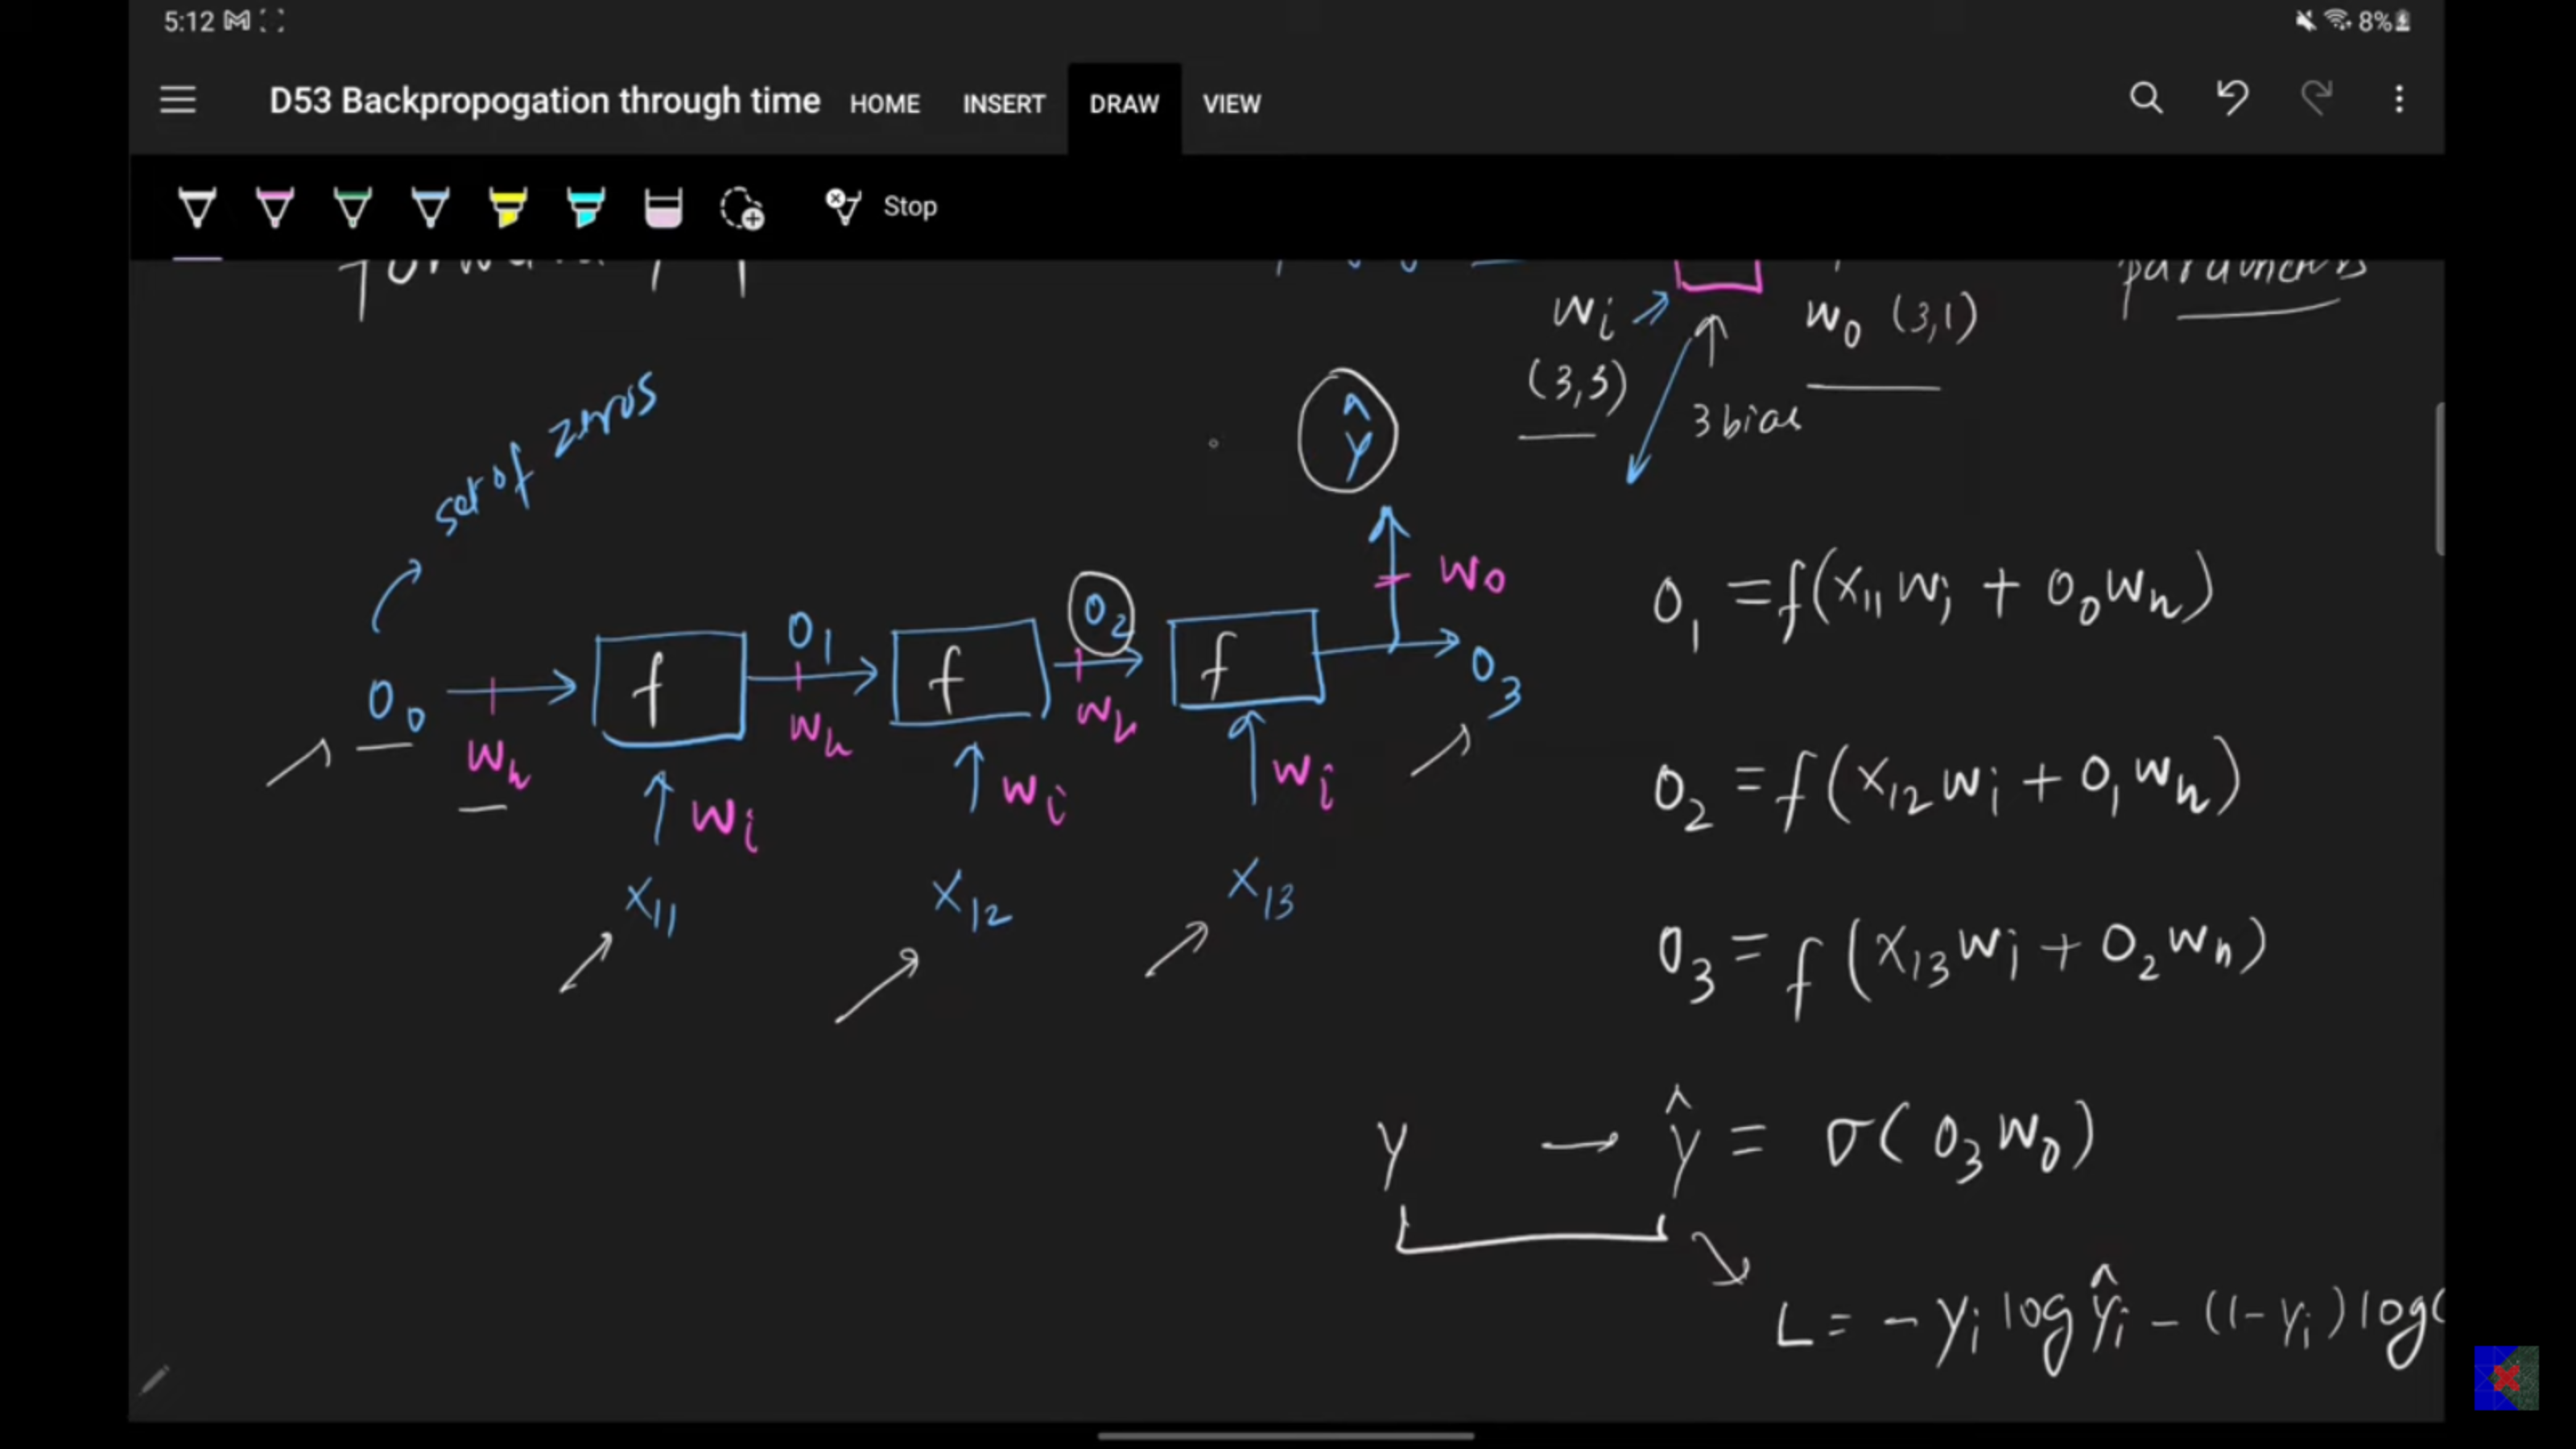 5:12
8%
D53 Backpropogation through time HOME INSERT DRAW VIEW
Stop
parameters
Wi
W0 (3,1)
(3,3)
3 bias
set of zeros
ŷ
W0
O0
Wh
f
O1
Wh
f
O2
Wh
f
O3
Wi
Wi
Wi
X11
X12
X13
O1 = f(X11 Wi + O0 Wh)
O2 = f(X12 Wi + O1 Wh)
O3 = f(X13 Wi + O2 Wh)
Y → Ŷ = σ(O3 W0)
L = - Yi log Ŷi - (1 - Yi) log(